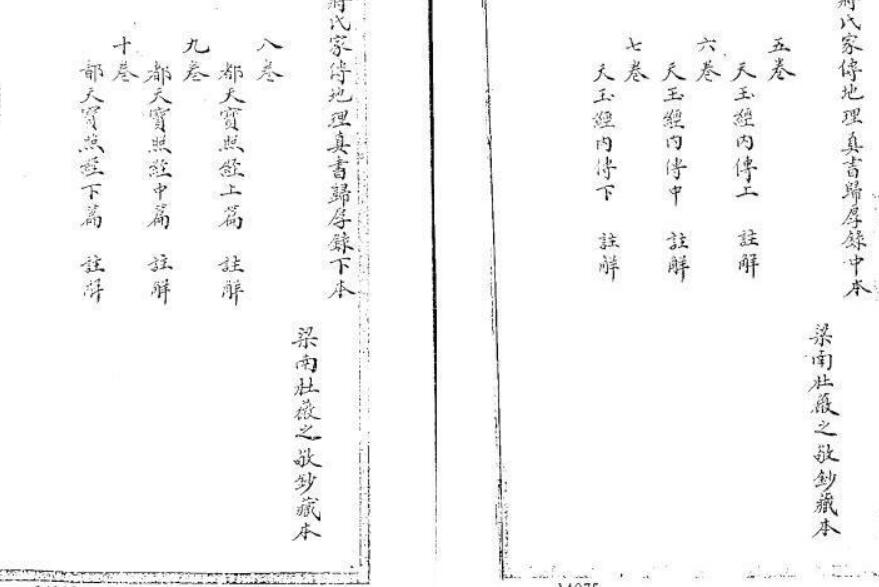 蔣氏家傳地理真書歸厚錄中本
梁南杜薇之敬鈔藏本
五卷
天玉經內傳上 註解
六卷
天玉經內傳中 註解
七卷
天玉經內傳下 註解
蔣氏家傳地理真書歸厚錄下本
梁南杜薇之敬鈔藏本
八卷
都天寶照經上篇 註解
九卷
都天寶照經中篇 註解
十卷
都天寶照經下篇 註解